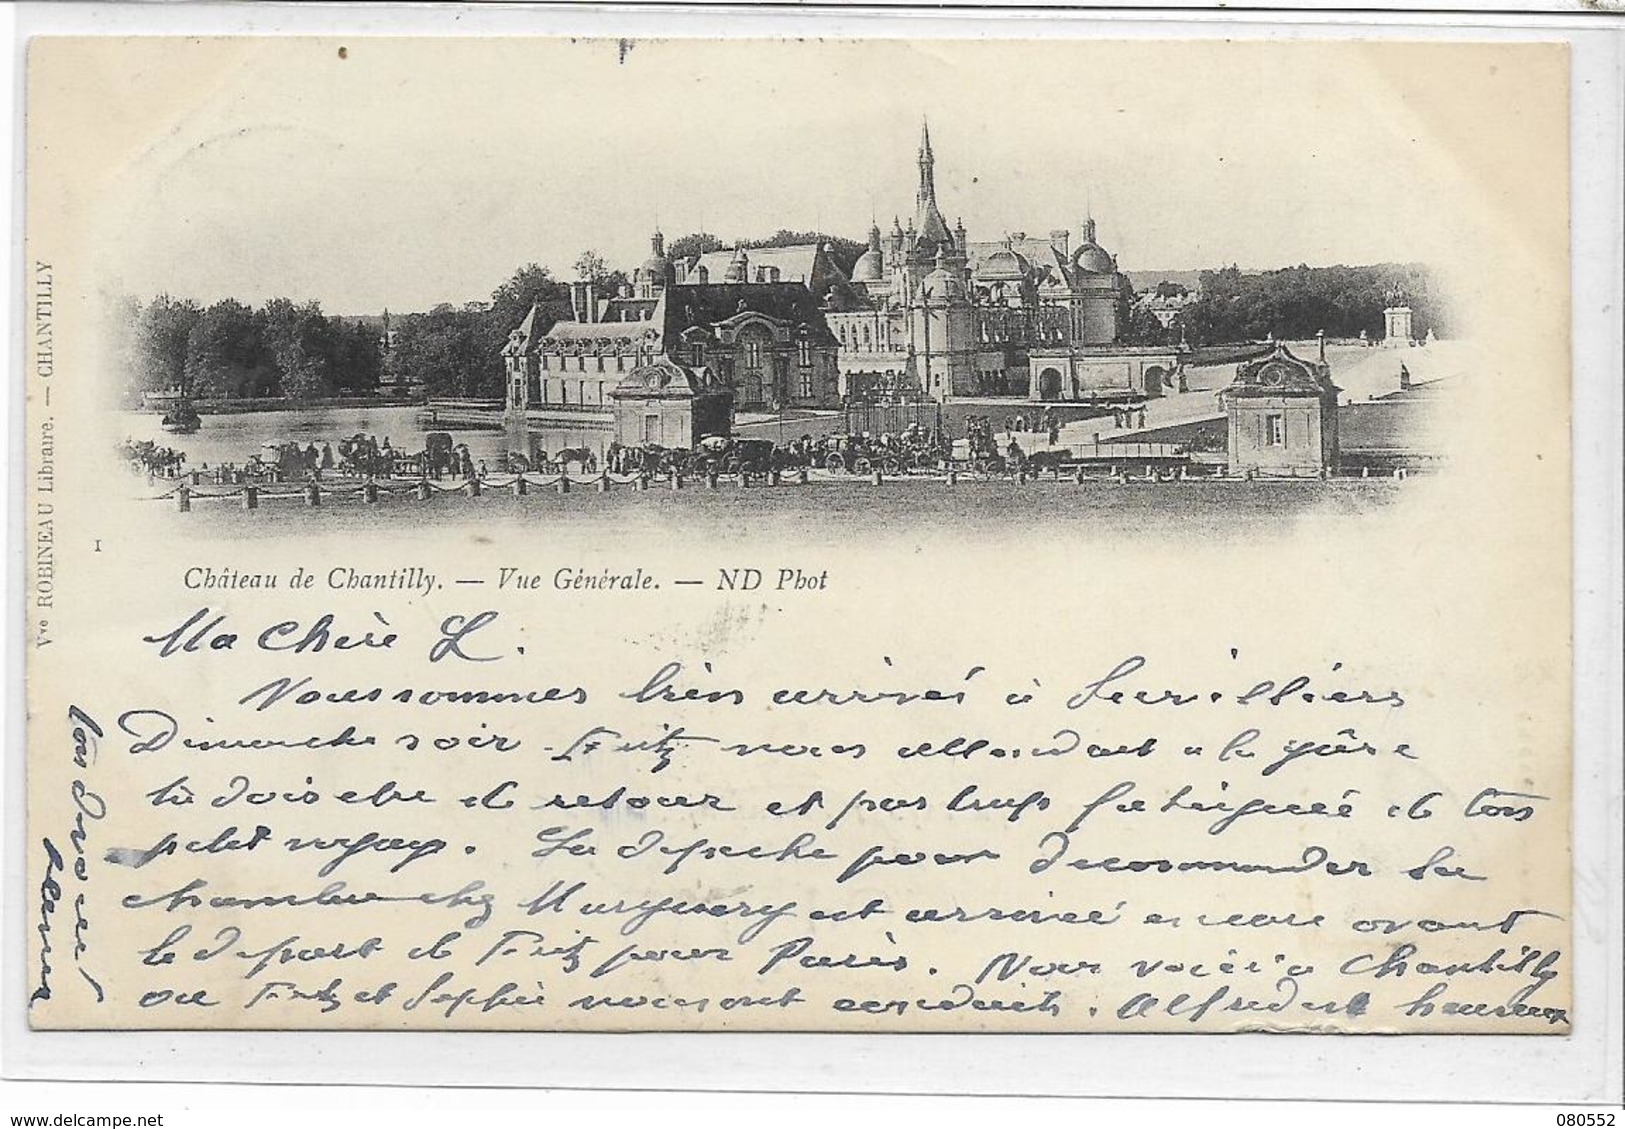 Vve ROBINEAU Libraire. — CHANTILLY
1
Château de Chantilly. — Vue Générale. — ND Phot
Ma Chère L.
Nous sommes bien arrivés à Survilliers
Dimanche soir Fritz nous attendait a la gare
tu dois etre de retour et pas trop fatiguée de ton
petit voyage. La depeche pour decommander la
chambre chez Marguery est arrivée encore avant
le depart de Fritz pour Paris. Nous voici a Chantilly
ou Fritz et Sophie nous ont conduits. Alfred est heureux
ton
080552